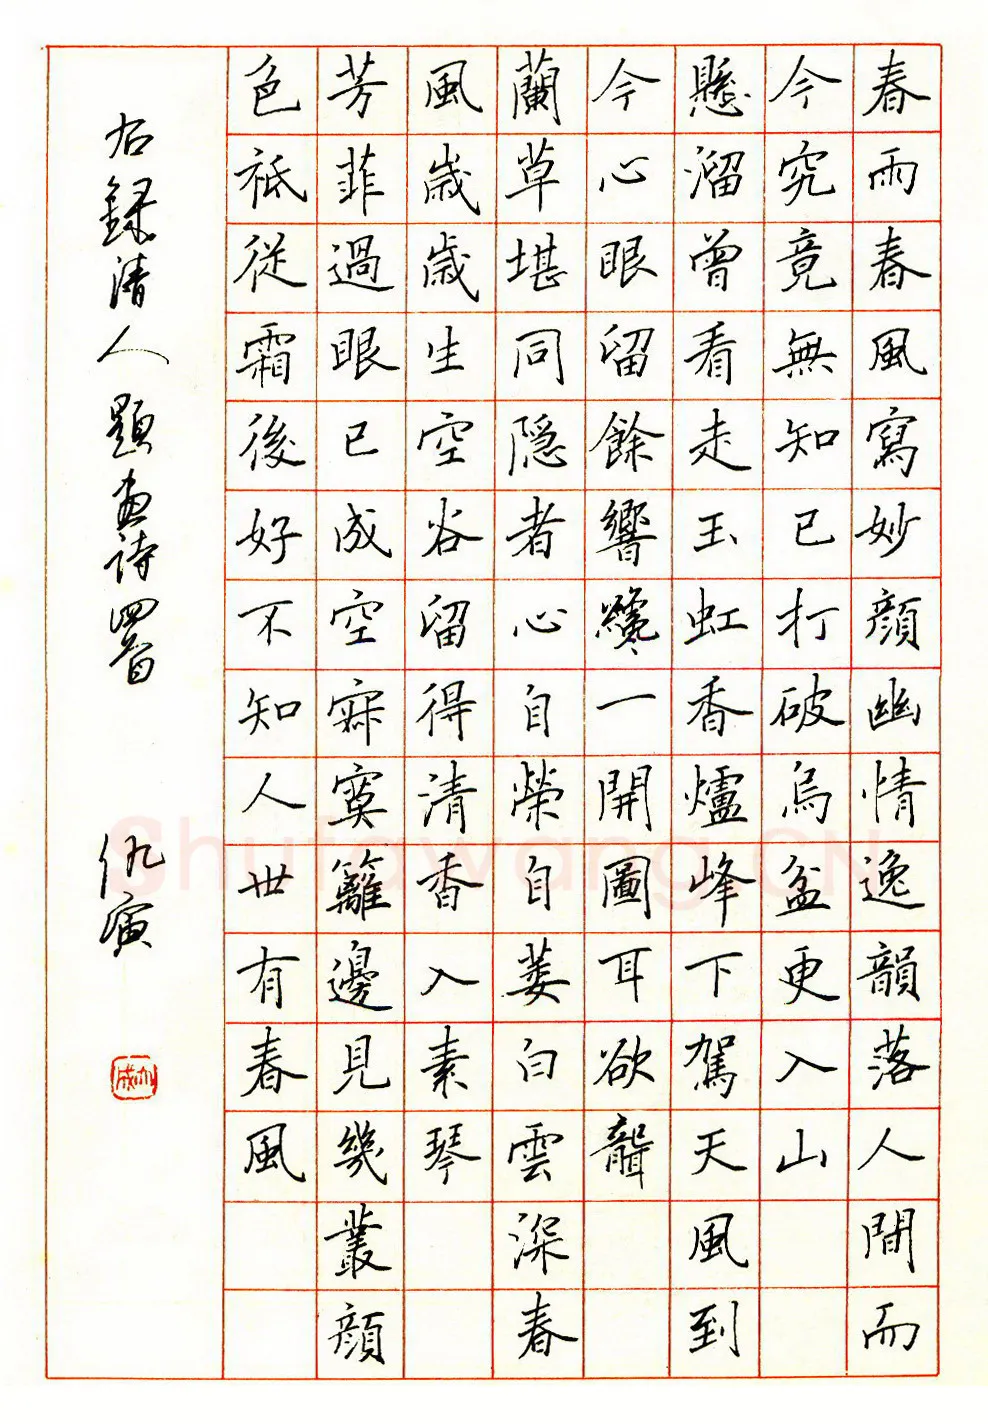 春雨春風寫妙顏幽情逸韻落人間而
今究竟無知己打破烏盆更入山
懸溜曾看走玉虹香爐峰下駕天風到
今心眼留餘響纔一開圖耳欲聾
蘭草堪同隱者心自榮自萎白雲深春
風歲歲生空谷留得清香入素琴
芳菲過眼已成空寂寞籬邊見幾叢顏
色祇從霜後好不知人世有春風
右錄清人題畫詩四首 仇寅
Shufawang.CN